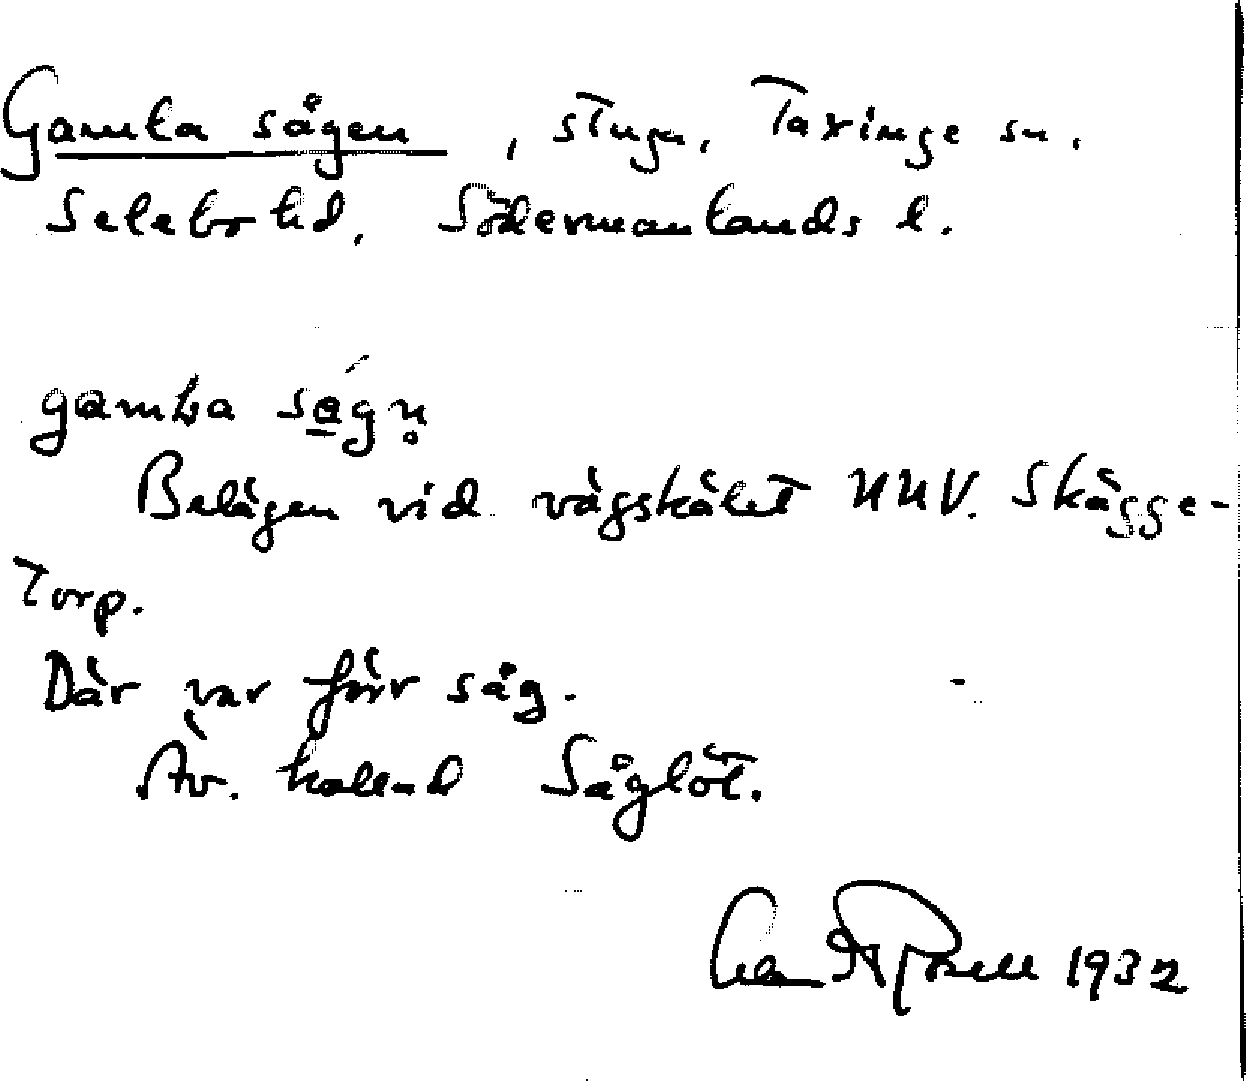 Gamla sågen, stuga, Taxinge sn.
Selebo hd, Södermanlands l.
gamla ságn̥
Belägen vid vägskälet NNV. Skägge-
torp.
Där var förr såg.
Äv. kallad Såglöt.
1932